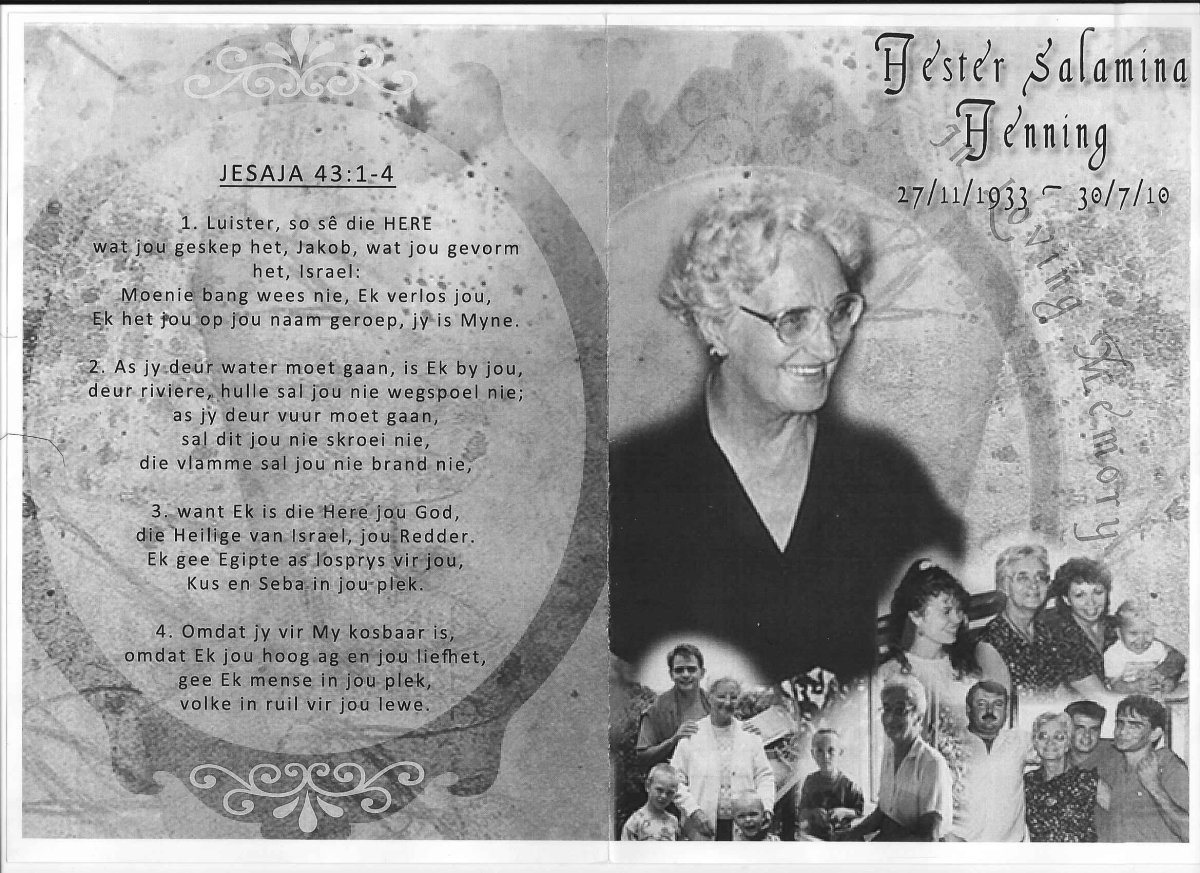 JESAJA 43:1-4
1. Luister, so sê die HERE
wat jou geskep het, Jakob, wat jou gevorm
het, Israel:
Moenie bang wees nie, Ek verlos jou,
Ek het jou op jou naam geroep, jy is Myne.
2. As jy deur water moet gaan, is Ek by jou,
deur riviere, hulle sal jou nie wegspoel nie;
as jy deur vuur moet gaan,
sal dit jou nie skroei nie,
die vlamme sal jou nie brand nie,
3. want Ek is die Here jou God,
die Heilige van Israel, jou Redder.
Ek gee Egipte as losprys vir jou,
Kus en Seba in jou plek.
4. Omdat jy vir My kosbaar is,
omdat Ek jou hoog ag en jou liefhet,
gee Ek mense in jou plek,
volke in ruil vir jou lewe.
Hester Salamina
Henning
27/11/1933 ~ 30/7/10
In Loving Memory